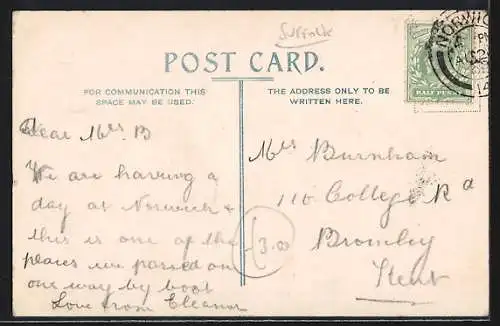 Suffolk
POST CARD.
FOR COMMUNICATION THIS
SPACE MAY BE USED.
THE ADDRESS ONLY TO BE
WRITTEN HERE.
NORWICH
HALF PENNY
Dear Mrs B
We are having a
day at Norwich &
this is one of the
places we passed on
our way by boat
Love from Eleanor
3.00
Mrs Burnham
110 College Rd
Bromley
Kent